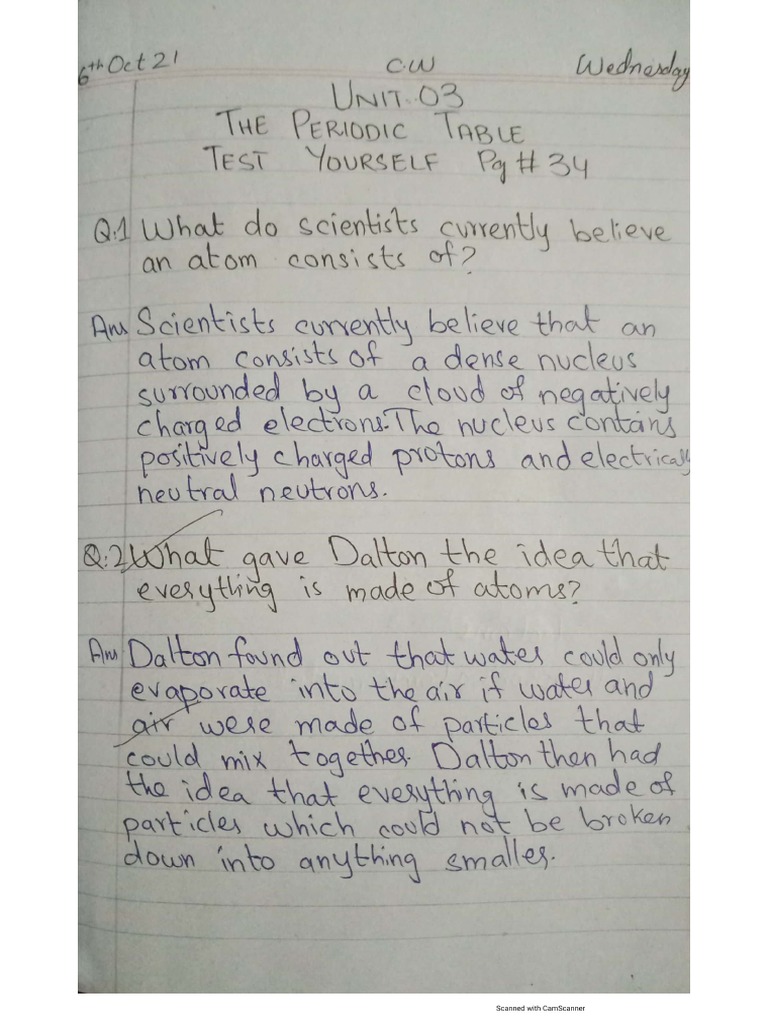 6th Oct 21 C.W Wednesday
UNIT 03
THE PERIODIC TABLE
TEST YOURSELF Pg # 34
Q:1 What do scientists currently believe
an atom consists of?
Ans Scientists currently believe that an
atom consists of a dense nucleus
surrounded by a cloud of negatively
charged electrons. The nucleus contains
positively charged protons and electrically
neutral neutrons.
Q:2 What gave Dalton the idea that
everything is made of atoms?
Ans Dalton found out that water could only
evaporate into the air if water and
air were made of particles that
could mix together. Dalton then had
the idea that everything is made of
particles which could not be broken
down into anything smaller.
Scanned with CamScanner